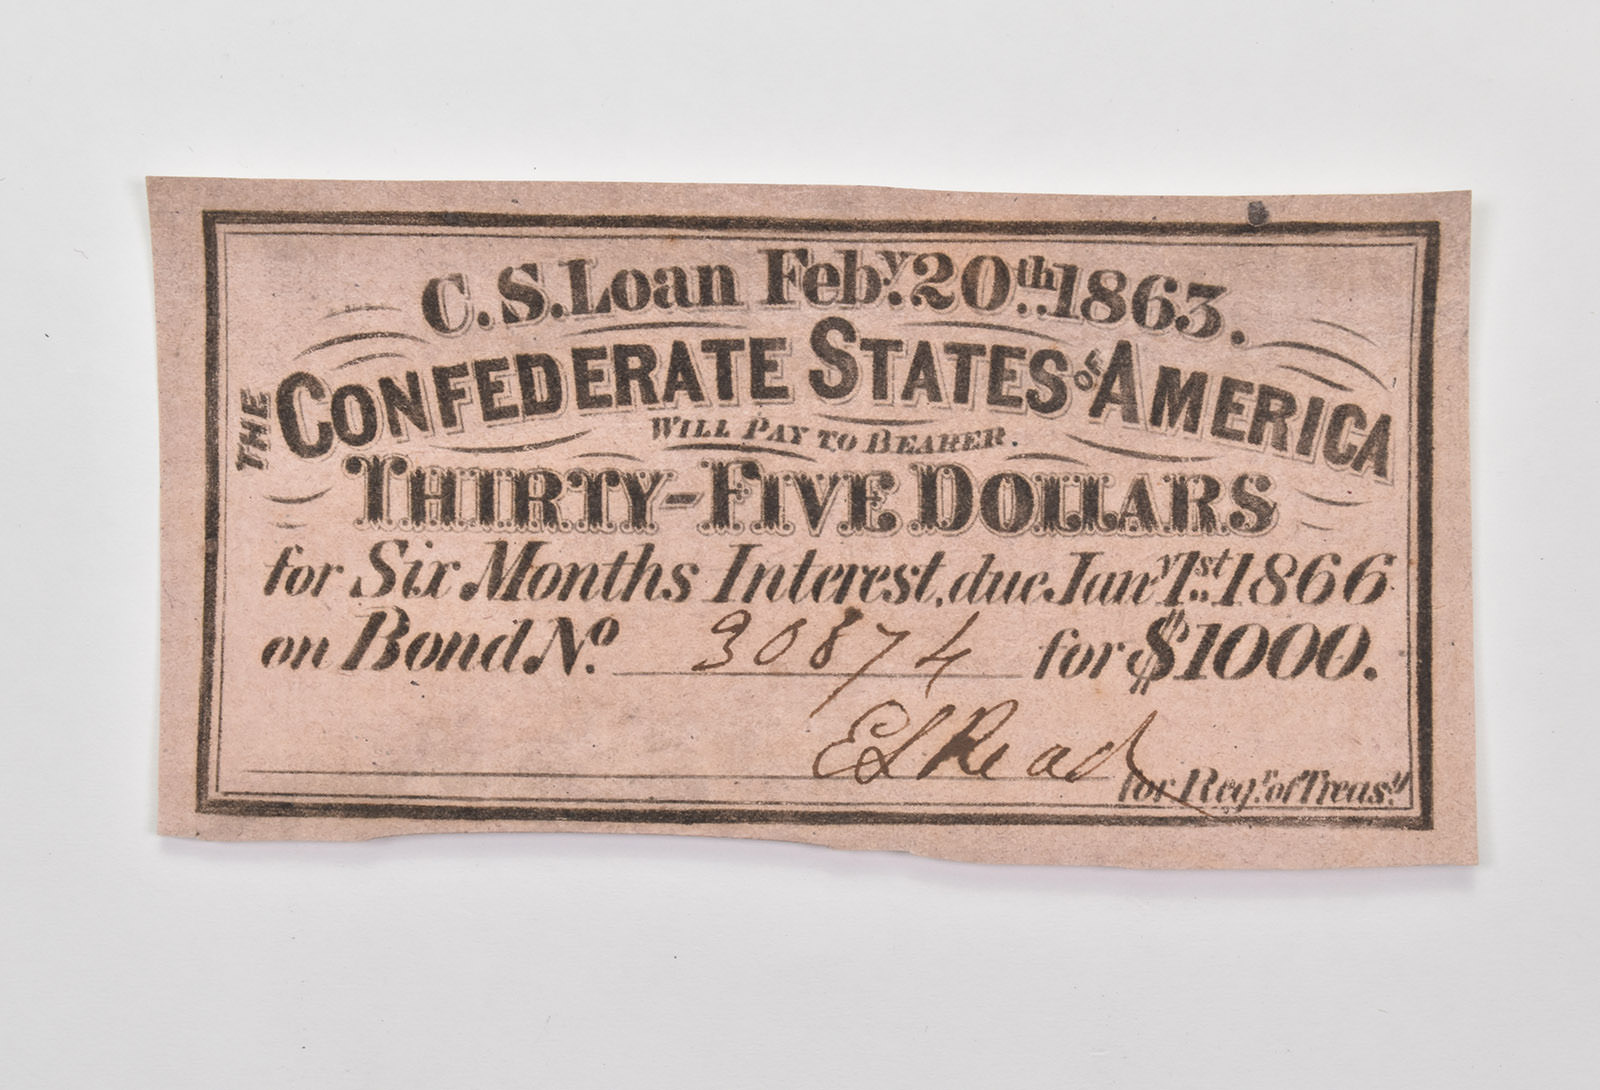 C. S. Loan Feby. 20th. 1863.
THE CONFEDERATE STATES OF AMERICA
WILL PAY TO BEARER.
THIRTY-FIVE DOLLARS
for Six Months Interest, due Jany. 1st. 1866
on Bond No. 30874 for $1000.
E S Read
for Regr. of Treasy.